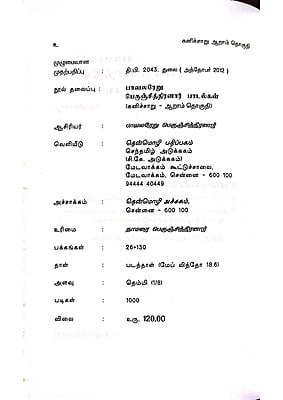 உ
கனிச்சாறு ஆறாம் தொகுதி
முழுமையான
முதற்பதிப்பு : தி.பி. 2043. துலை (அத்தோபர் 2012)
நூல் தலைப்பு : பாவலரேறு
பெருஞ்சித்திரனார் பாடல்கள்
(கனிச்சாறு - ஆறாம் தொகுதி)
ஆசிரியர் : பாவலரேறு பெருஞ்சித்திரனார்
வெளியீடு : தென்மொழி பதிப்பகம்
செந்தமிழ் அடுக்ககம்
(சி.கே. அடுக்ககம்)
மேடவாக்கம் கூட்டுச்சாலை,
மேடவாக்கம், சென்னை - 600 100
94444 40449
அச்சாக்கம் : தென்மொழி அச்சகம்,
சென்னை - 600 100
உரிமை : தாமரை பெருஞ்சித்திரனார்
பக்கங்கள் : 26+130
தாள் : படத்தாள் (மேப் வித்தோ 18.6)
அளவு : தெம்மி (1/8)
படிகள் : 1000
விலை : உரு. 120.00